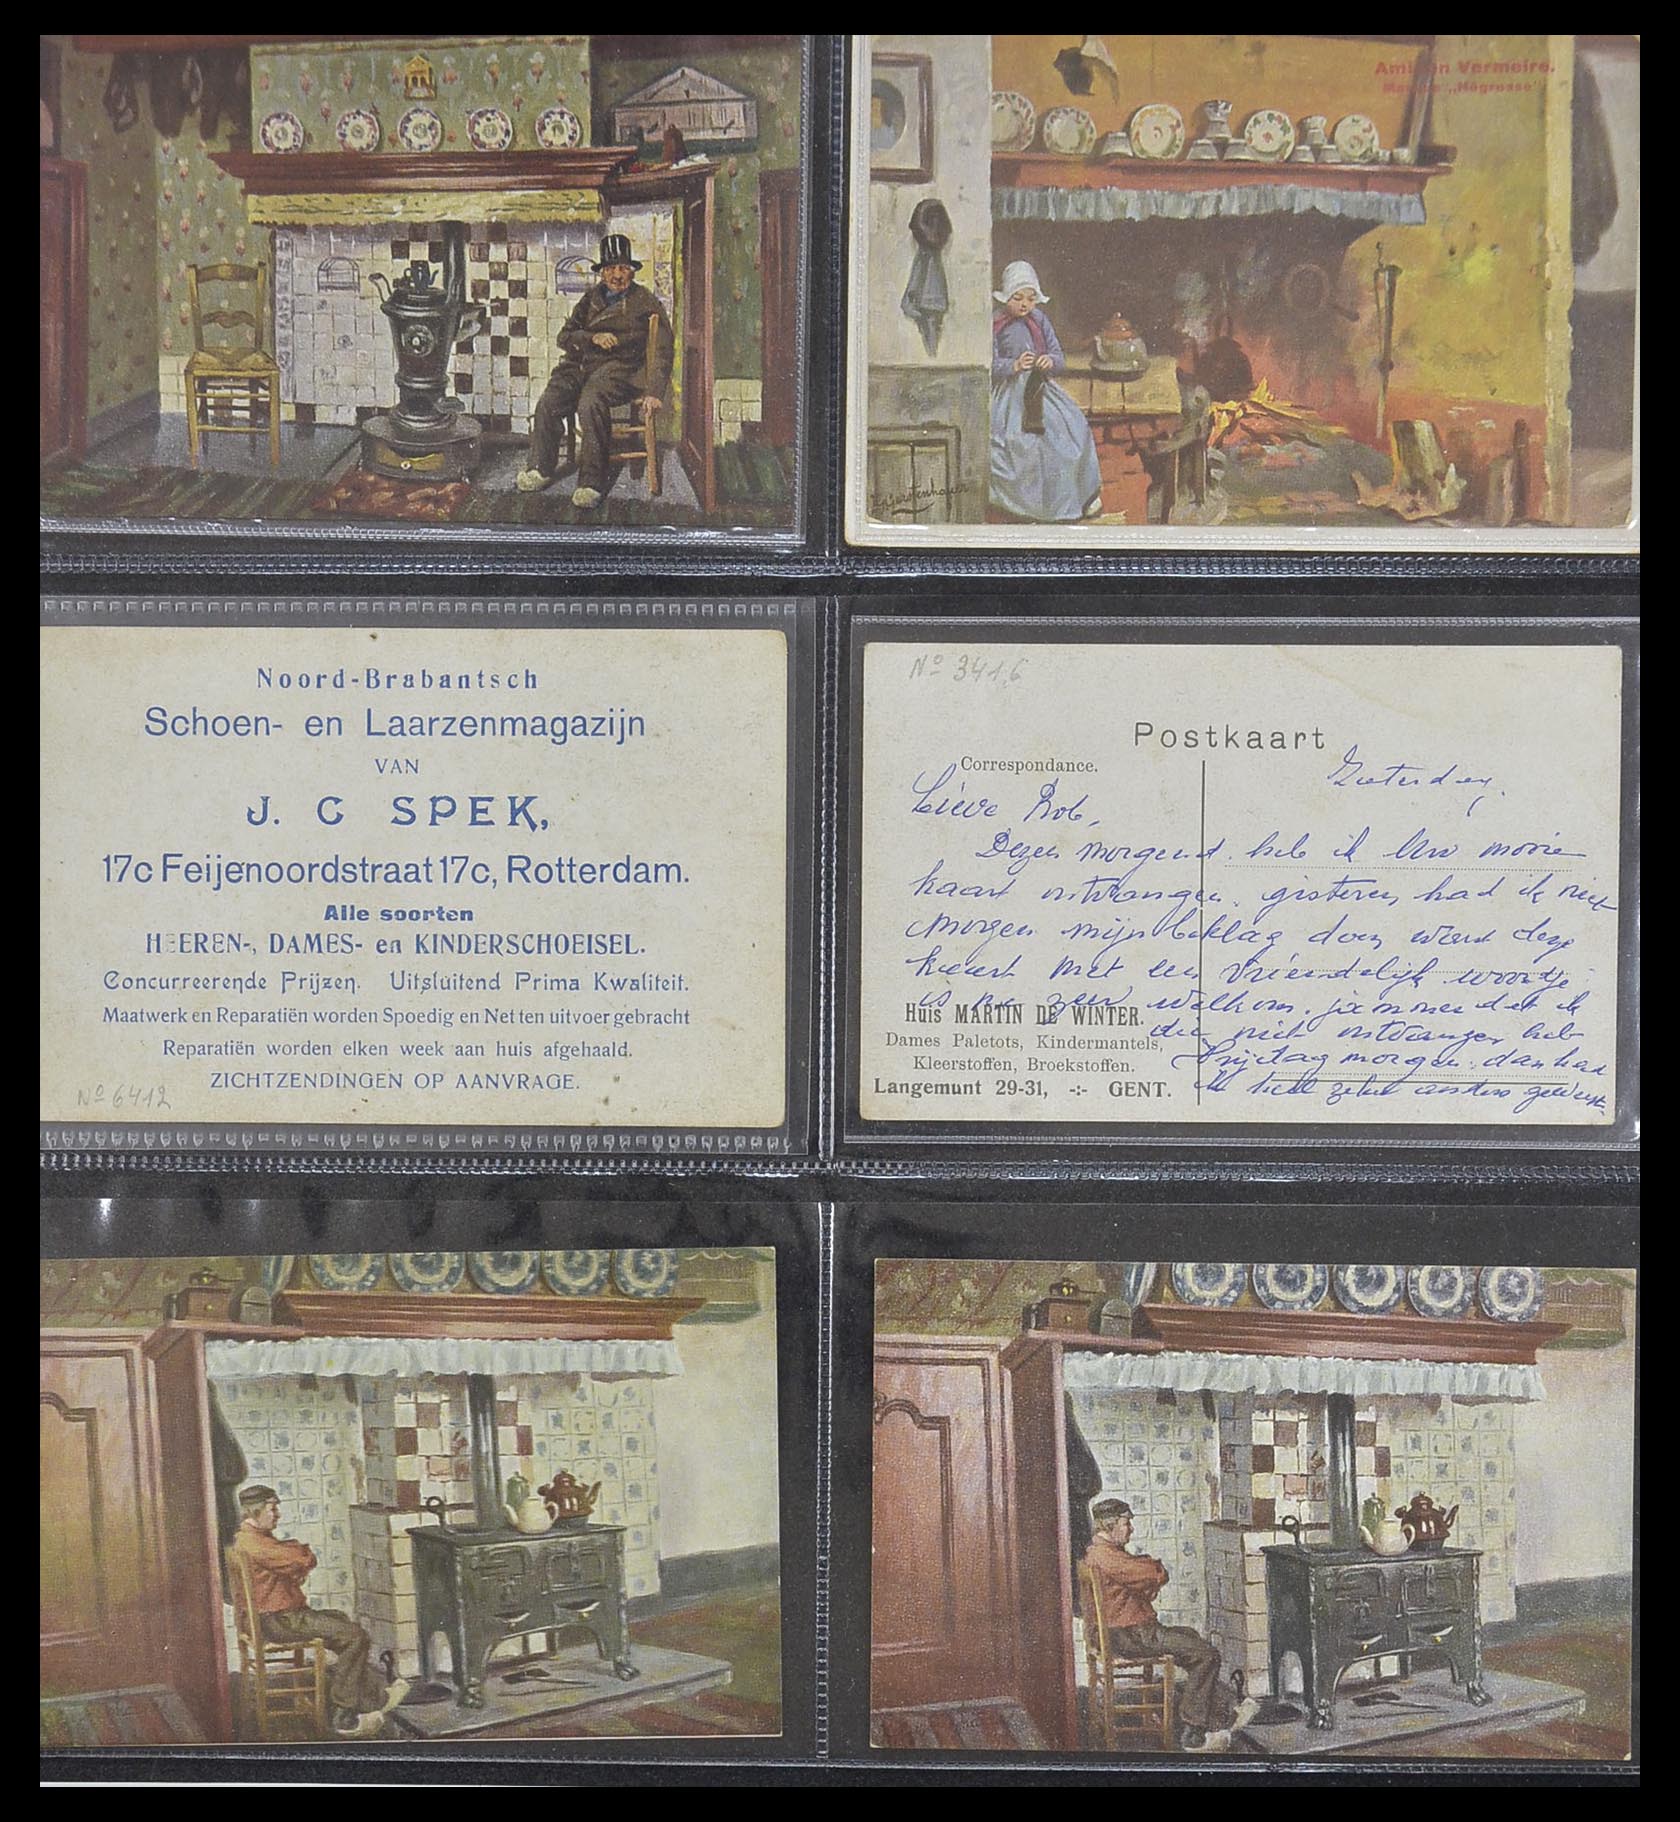 Vermeire.
Gerstenhauer
Noord-Brabantsch
Schoen- en Laarzenmagazijn
VAN
J. C SPEK,
17c Feijenoordstraat 17c, Rotterdam.
Alle soorten
HEEREN-, DAMES- en KINDERSCHOEISEL.
Concurreerende Prijzen. Uitsluitend Prima Kwaliteit.
Maatwerk en Reparatiën worden Spoedig en Net ten uitvoer gebracht
Reparatiën worden elken week aan huis afgehaald.
ZICHTZENDINGEN OP AANVRAGE.
No 6412
No 341.6
Postkaart
Correspondance.
Zaterdag.
Lieve Rob,
Dezen morgend heb ik Uw mooie
kaart ontvangen. gisteren had ik niet
morgen mijn beklag doen want deze
kaart met een vriendelijk woordje
is me zeer welkom. jammer dat ik
die niet ontvangen heb
Vrijdag morgen. dan had
ik heel zeker anders geweest.
Huis MARTIN DE WINTER.
Dames Paletots, Kindermantels,
Kleerstoffen, Broekstoffen.
Langemunt 29-31, -:- GENT.